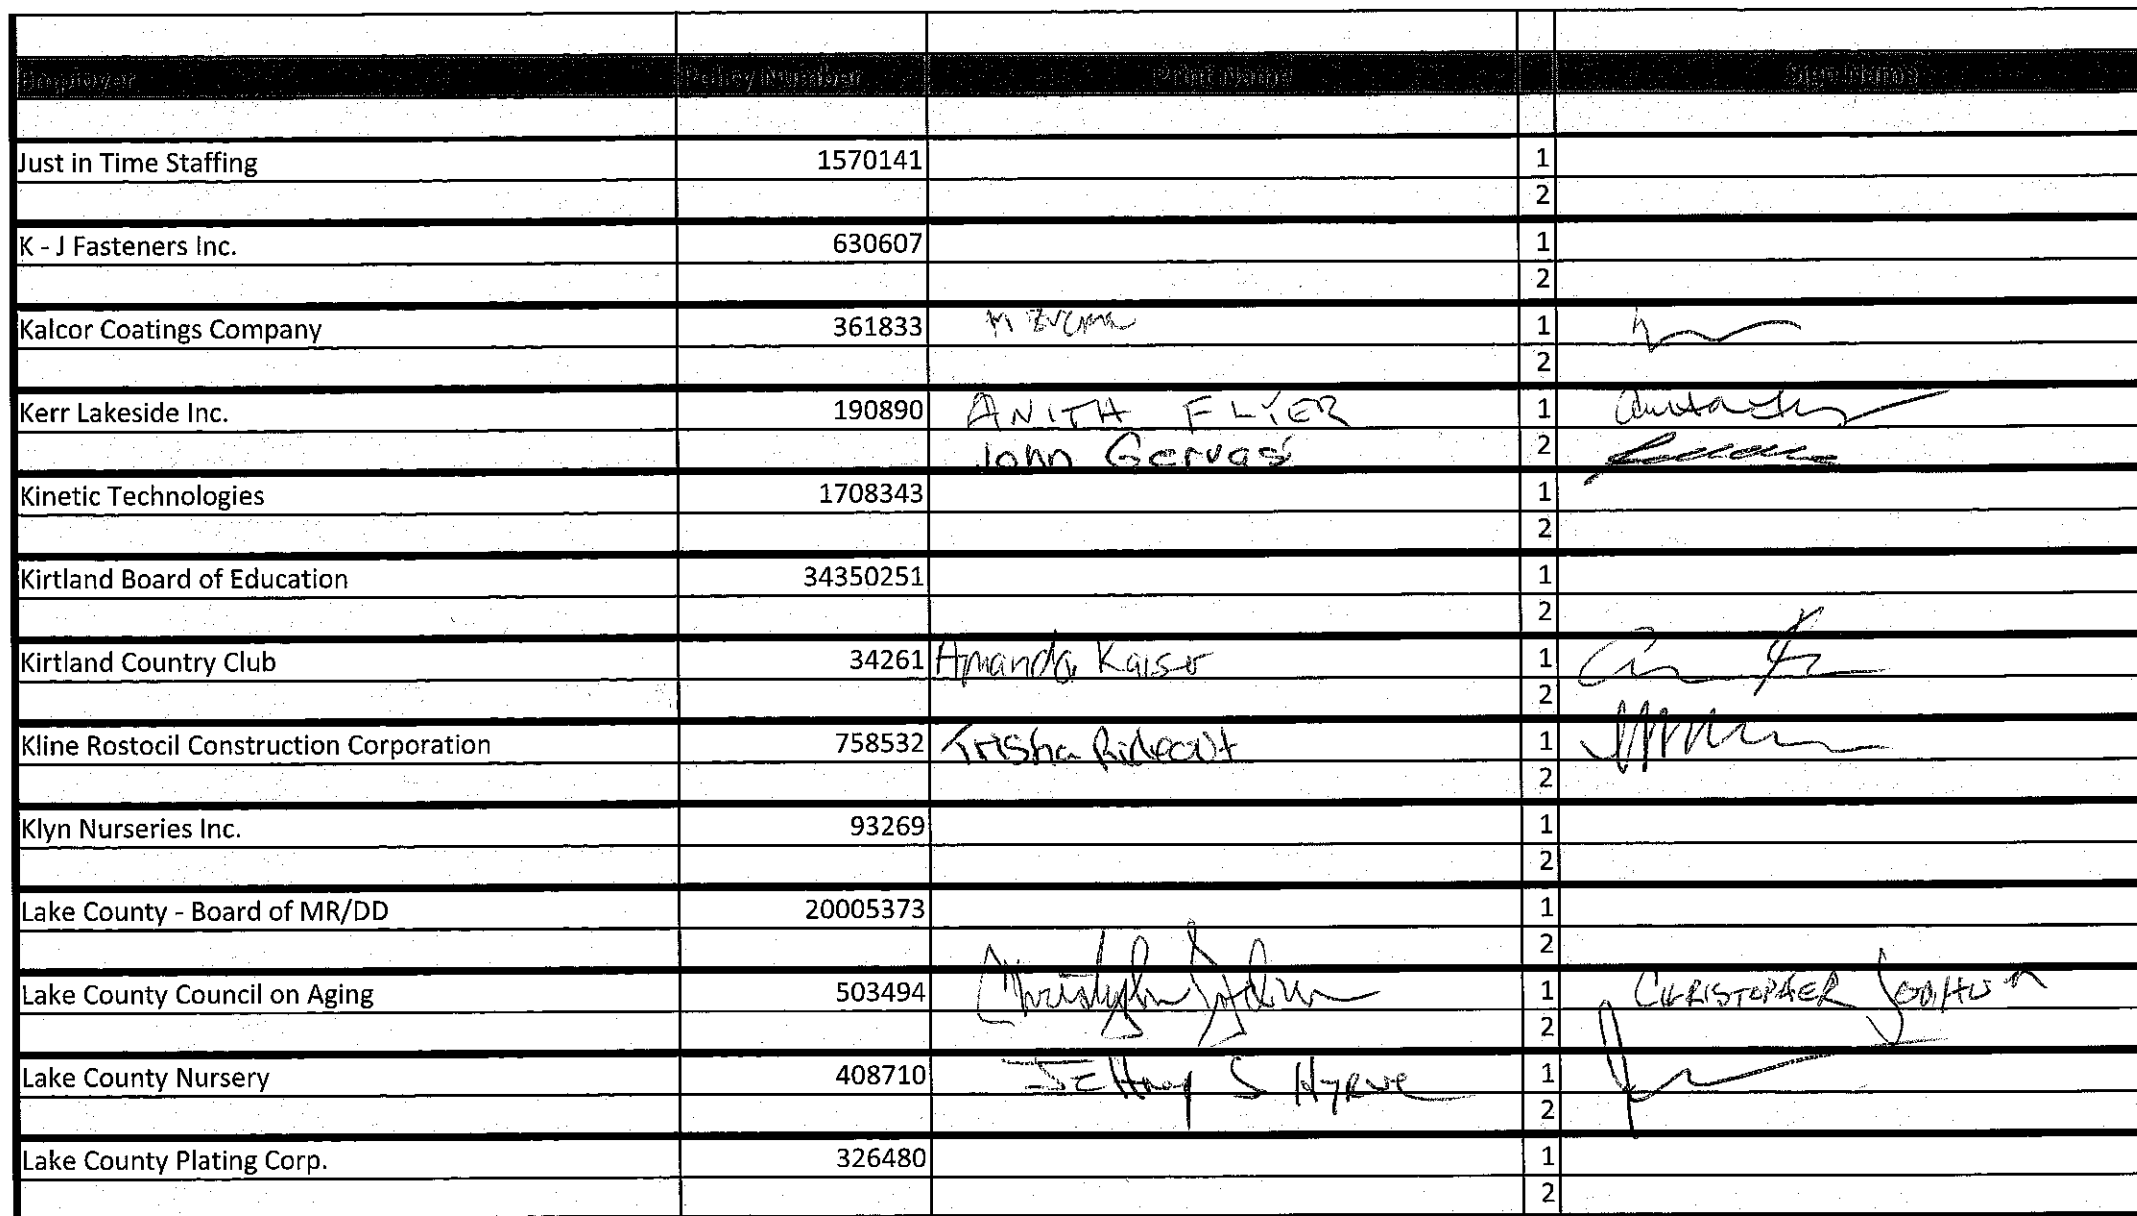 Employer Policy Number Print Name Sign Name
Just in Time Staffing 1570141 1
2
K - J Fasteners Inc. 630607 1
2
Kalcor Coatings Company 361833 1
2
Kerr Lakeside Inc. 190890 ANITA FLIER 1
John Gervasi 2
Kinetic Technologies 1708343 1
2
Kirtland Board of Education 34350251 1
2
Kirtland Country Club 34261 Amanda Kaiser 1
2
Kline Rostocil Construction Corporation 758532 Trisha Rideout 1
2
Klyn Nurseries Inc. 93269 1
2
Lake County - Board of MR/DD 20005373 1
2
Lake County Council on Aging 503494 1 CHRISTOPHER
2
Lake County Nursery 408710 S 1
2
Lake County Plating Corp. 326480 1
2